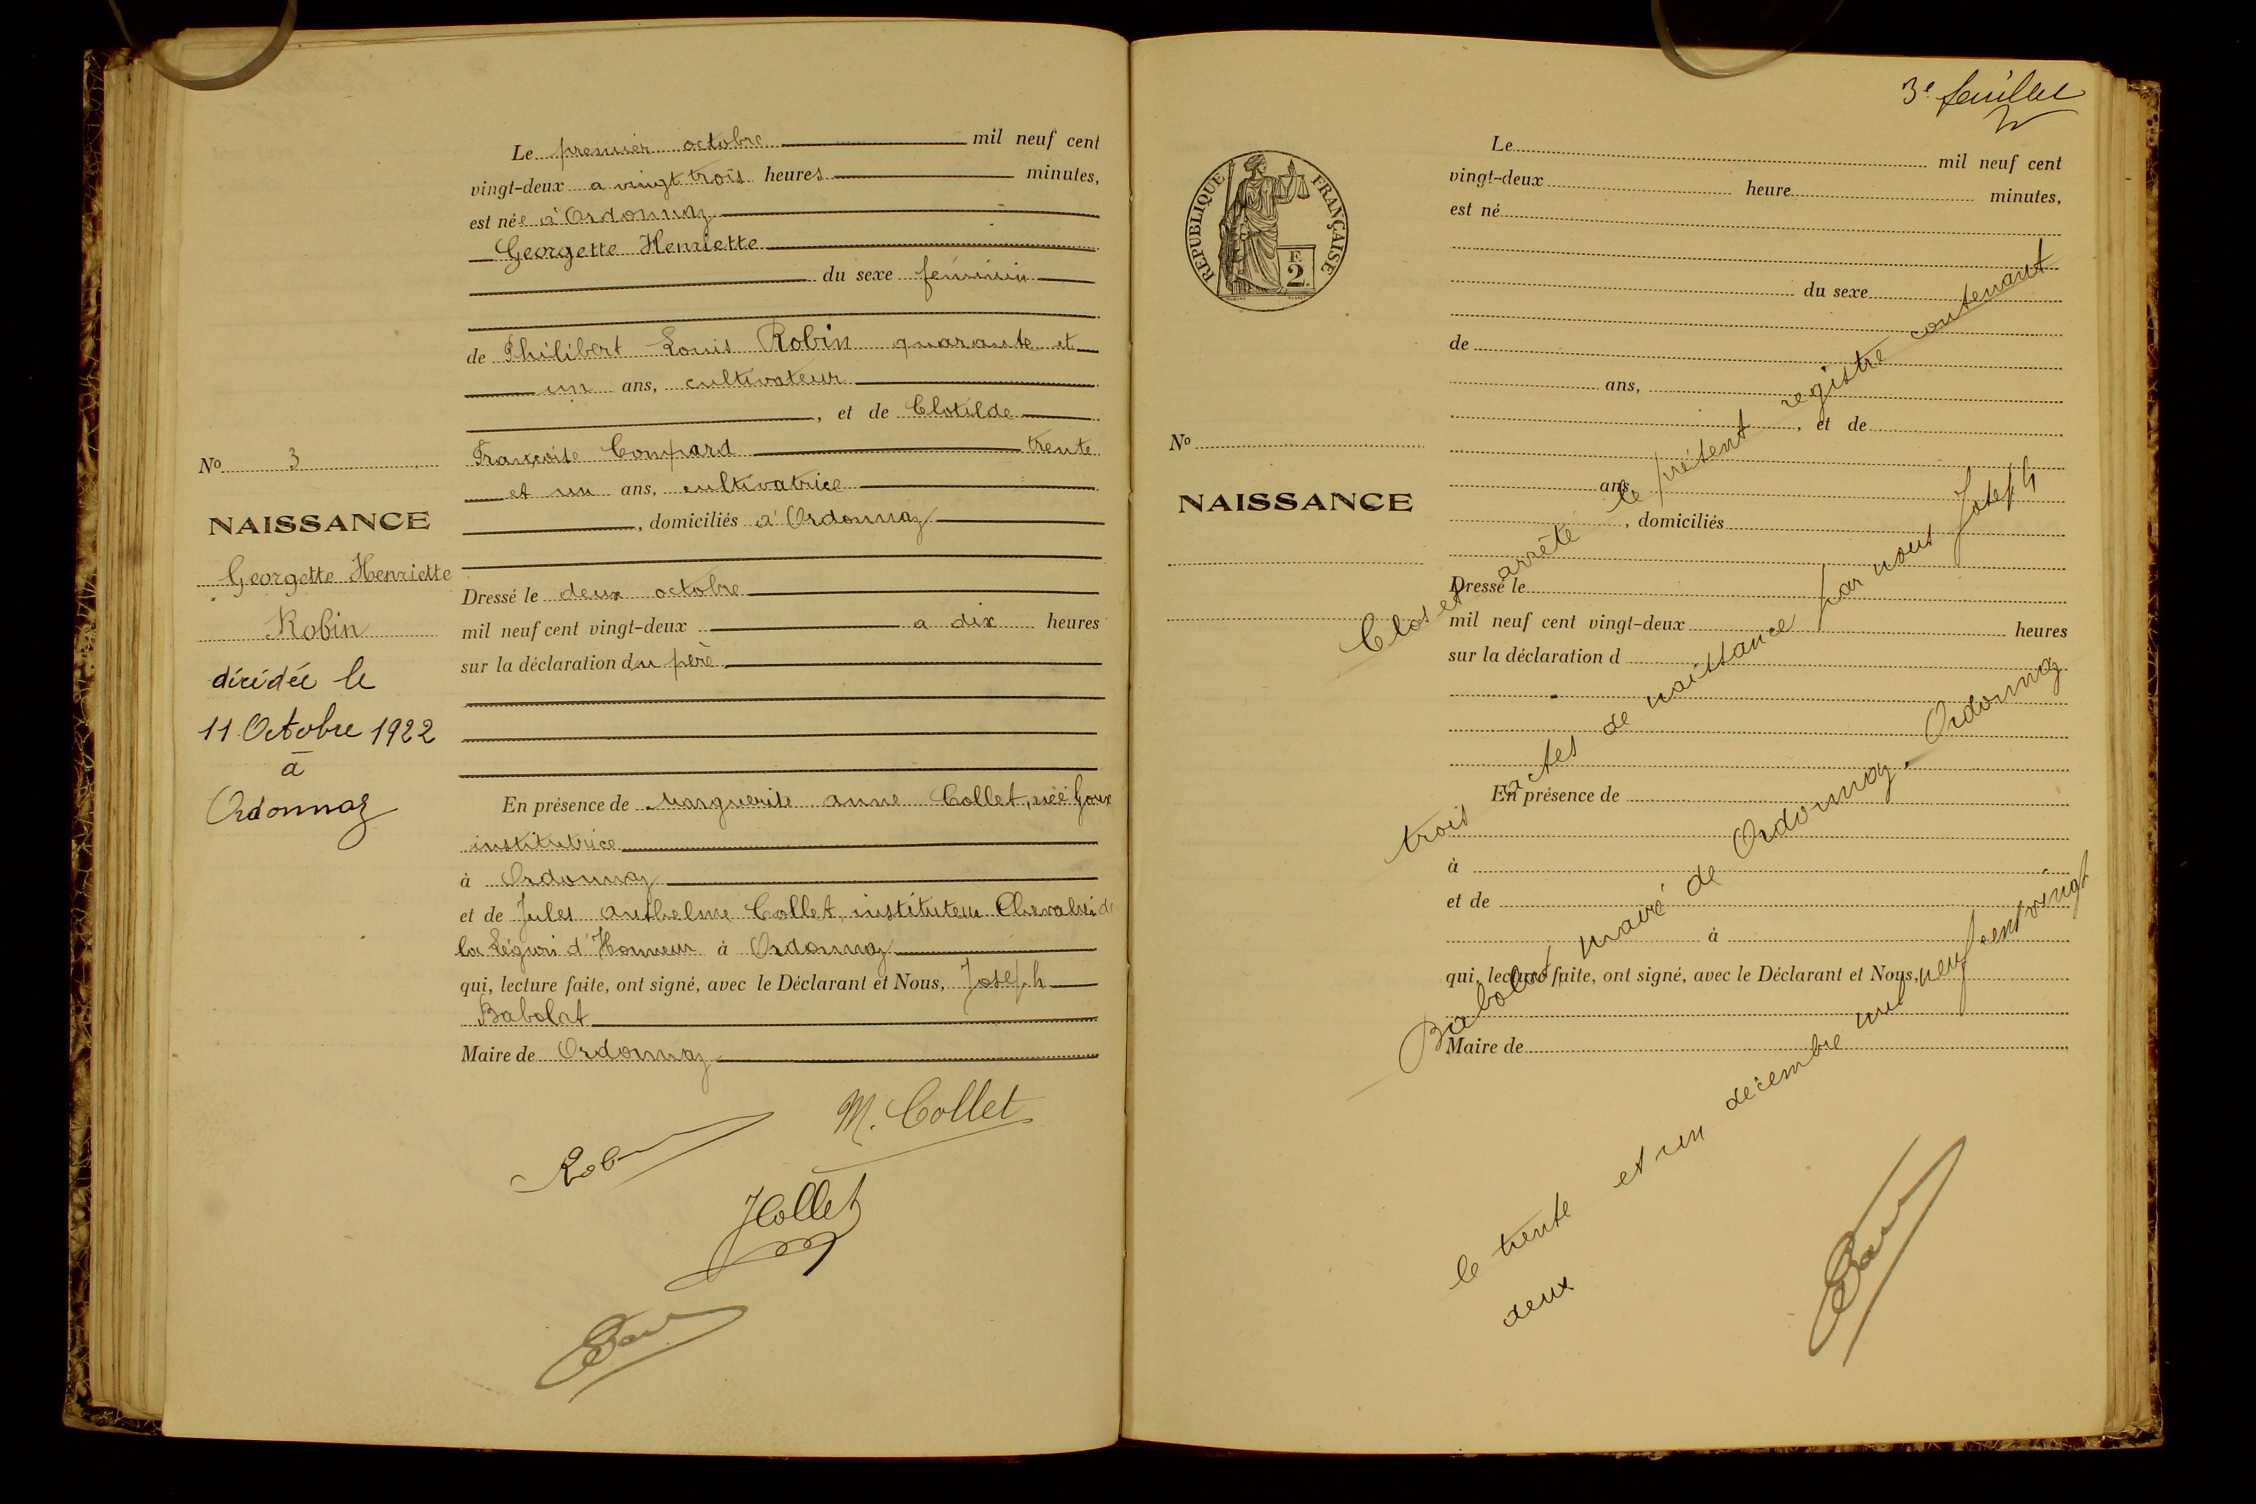 Le premier octobre mil neuf cent
vingt-deux a vingt trois heures minutes,
est née à Ordonnaz
Georgette Henriette
du sexe féminin
de Philibert Louis Robin quarante et
un ans, cultivateur
, et de Clotilde
Françoise Compard trente
et un ans, cultivatrice
, domiciliés à Ordonnaz
Dressé le deux octobre
mil neuf cent vingt-deux a dix heures
sur la déclaration du père
En présence de Marguerite anne Collet, née Goux
institutrice
à Ordonnaz
et de Jules Anthelme Collet, instituteur Chevalier de
la Légion d'Honneur à Ordonnaz
qui, lecture faite, ont signé, avec le Déclarant et Nous, Joseph
Babolat
Maire de Ordonnaz
No 3
NAISSANCE
Georgette Henriette
Robin
décédée le
11 Octobre 1922
à
Ordonnaz
M. Collet
JCollet
3e feuillet
REPUBLIQUE FRANÇAISE
F.
2.
Le mil neuf cent
vingt-deux heure minutes,
est né
du sexe
de
ans,
, et de
ans,
, domiciliés
Dressé le
mil neuf cent vingt-deux heures
sur la déclaration d
En présence de
à
et de
à
qui, lecture faite, ont signé, avec le Déclarant et Nous,
Maire de
No
NAISSANCE
Clos et arrêté le présent registre contenant
trois actes de naissance par nous Joseph
Babolat maire de Ordonnaz. Ordonnaz
le trente et un décembre mil neuf cent vingt
deux